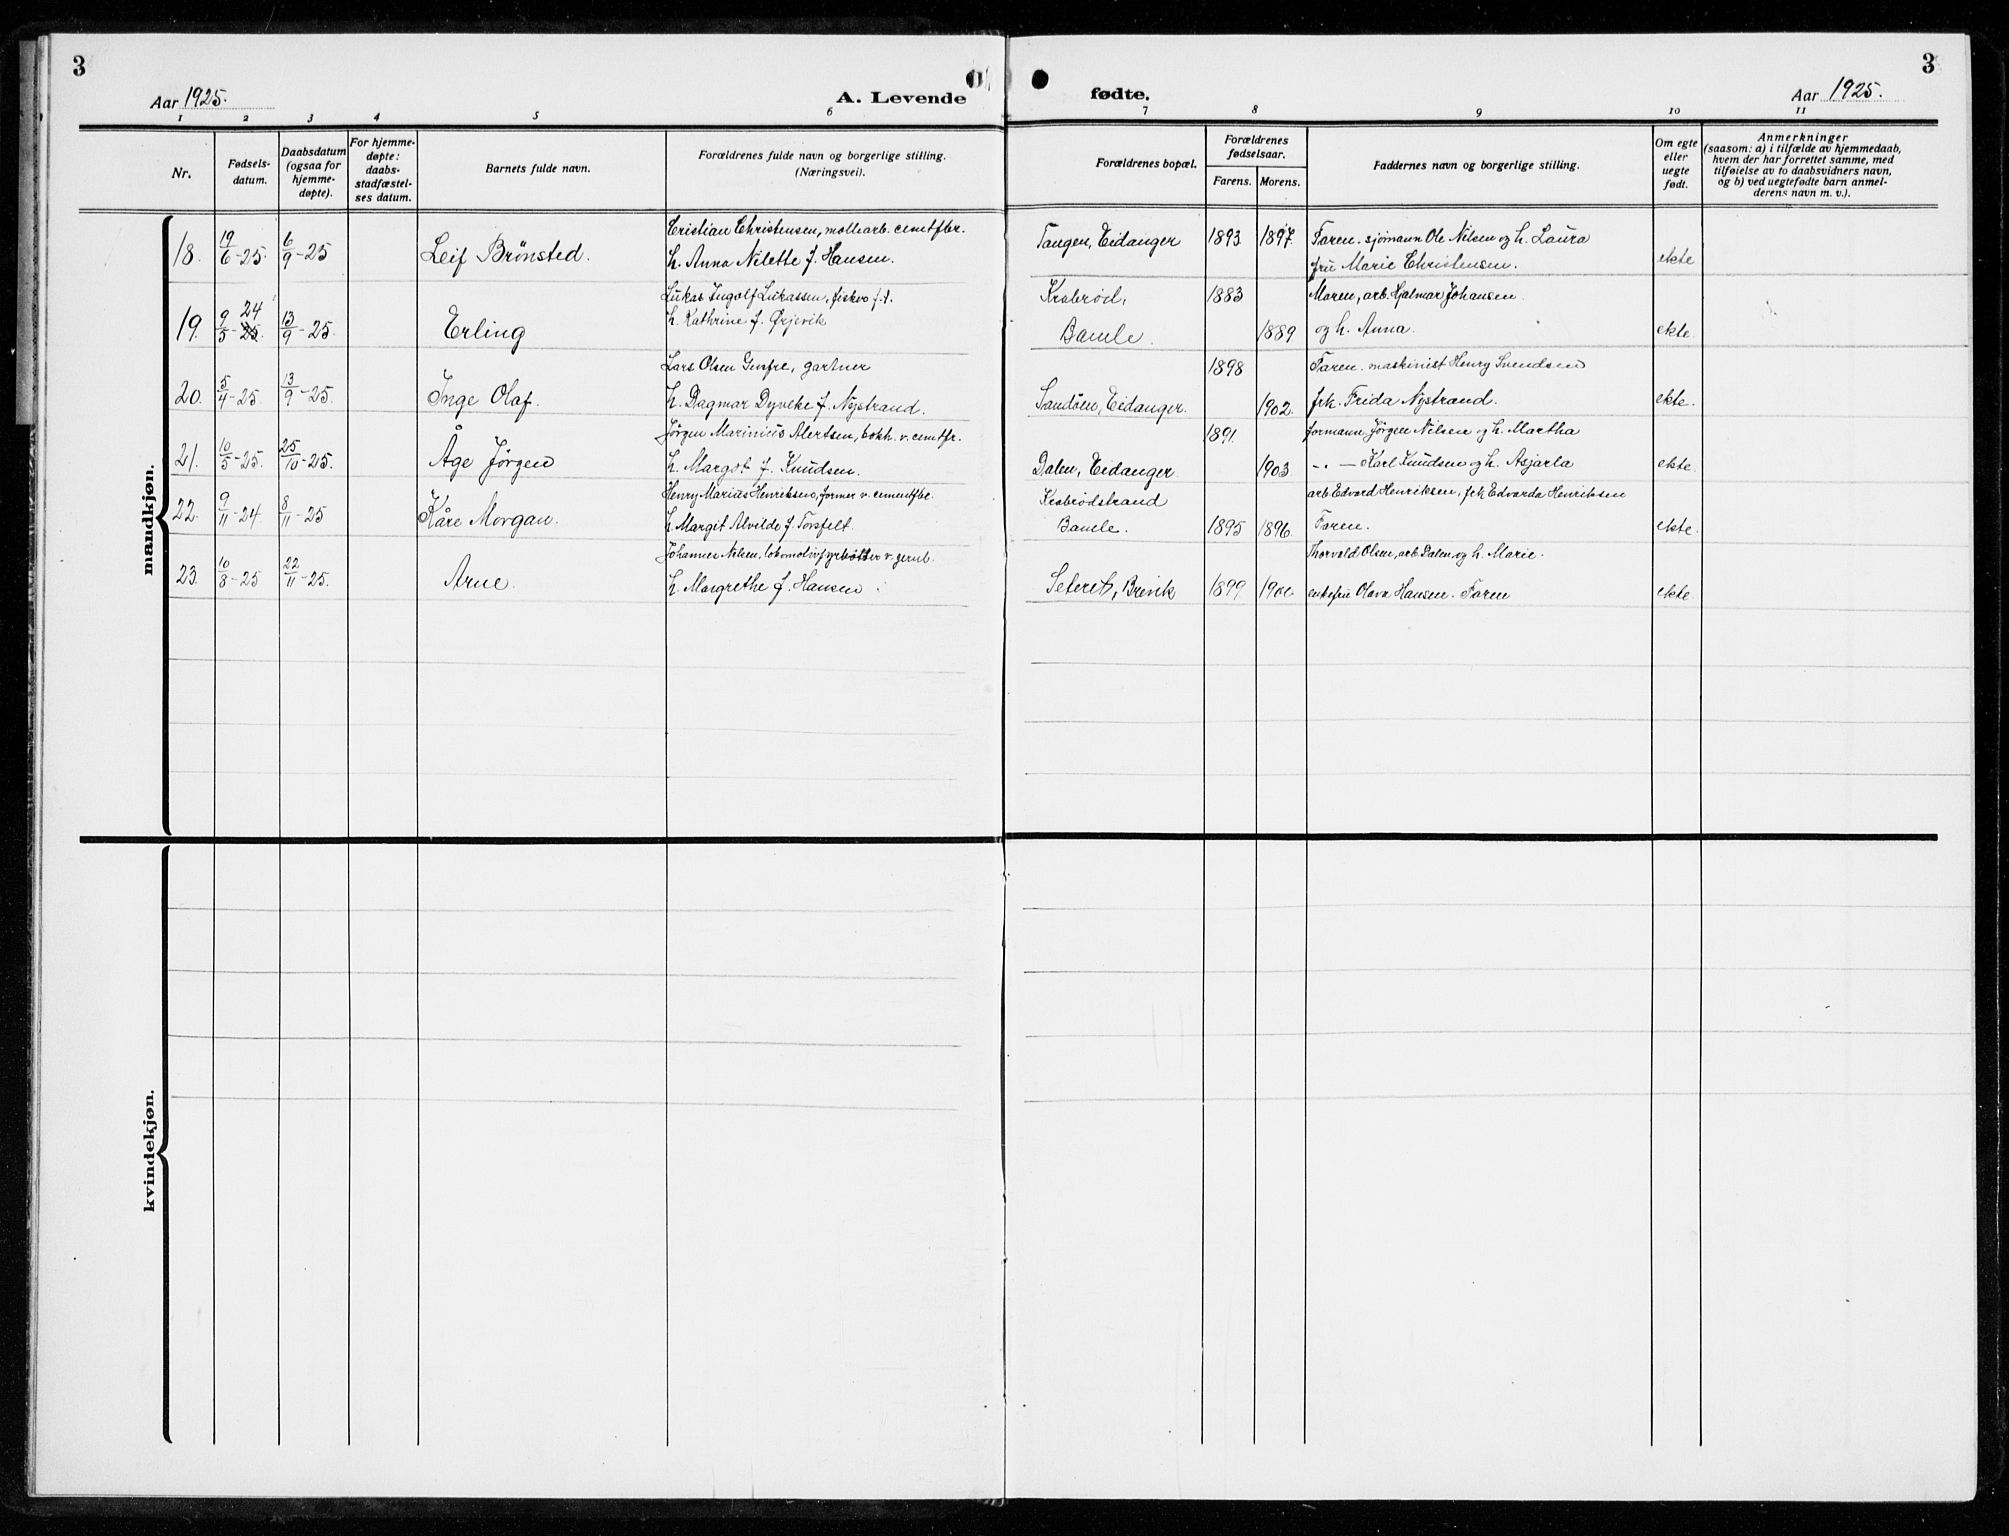 3
3
Aar 1925.
A. Levende
fødte.
Aar 1925.
1 2 3 4 5 6 7 8 9 10 11
Nr.
Fødsels-
datum.
Daabsdatum
(ogsaa for
hjemme-
døpte).
For hjemme-
døpte:
daabs-
stadfæstel-
ses datum.
Barnets fulde navn.
Forældrenes fulde navn og borgerlige stilling.
(Næringsvei).
Forældrenes bopæl.
Forældrenes
fødselsaar.
Farens. Morens.
Faddernes navn og borgerlige stilling.
Om egte
eller
uegte
født.
Anmerkninger
(saasom: a) i tilfælde av hjemmedaab,
hvem der har forrettet samme, med
tilføielse av to daabsvidners navn,
og b) ved uegtefødte barn anmel-
derens navn m. v.).
mandkjøn.
Cristian Christensen, møllearb. cemtfbr. Tangen, Eidanger 1893 1897. Faren. sjømann Ole Nilsen og h. Laura
18. 19/6-25. 6/9-25 Leif Brønsted. h. Anna Nilette f. Hansen. fru Marie Christensen. ekte
Lukas Ingolf Lukassen, fisker f.t. Krabrød, 1883 Moren, arb. Hjalmar Johansen
19. 9/5-25. 24 13/9-25. Erling h. Kathrine f. Ørjevik Bamle. 1889 og h. Anna. ekte.
Lars Olsen, gartner 1898 Faren. maskinist Henry Svendsen
20. 5/4-25 13/9-25. Inge Olaf. h. Dagmar Dyveke f. Nystrand. Sandøen, Eidanger. 1902. frk. Frida Nystrand. ekte.
Jørgen Marinius Alertsen, bokh. v. cemtfr. 1891. formann Jørgen Nilsen og h. Martha
21. 10/5-25. 25/10-25. Åge Jørgen h. Margot f. Knudsen. Dalen, Eidanger 1903 -"- Karl Knudsen og h. Asjarta ekte.
Henry Marius Henriksen, former v. cementfbr. Krabrødstrand arb Edvard Henriksen, frk Edvarda Henriksen
22. 9/11-24 8/11-25 Kåre Morgan. h. Margit Alvilde f. Torsfelt. Bamle. 1895 1896 Faren. ekte.
Johannes Nilsen, lokomotivfyrbøtter v. jernb. Thorvald Olsen, arb. Dalen, og h. Marie.
23. 10/8-25 22/11-25. Arne. h. Margrethe f. Hansen Brevik 1899 enkefru Olava Hansen. Faren ekte.
kvindekjøn.